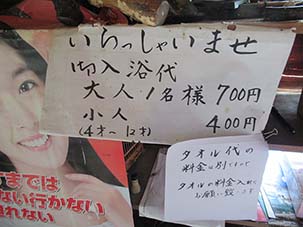 いらっしゃいませ
御入浴代
大人1名様 700円
小人 400円
(4才〜12才)
タオル代の
料金は別です
タオルの料金入れに
お願い致します
までは
ない行かない
れない